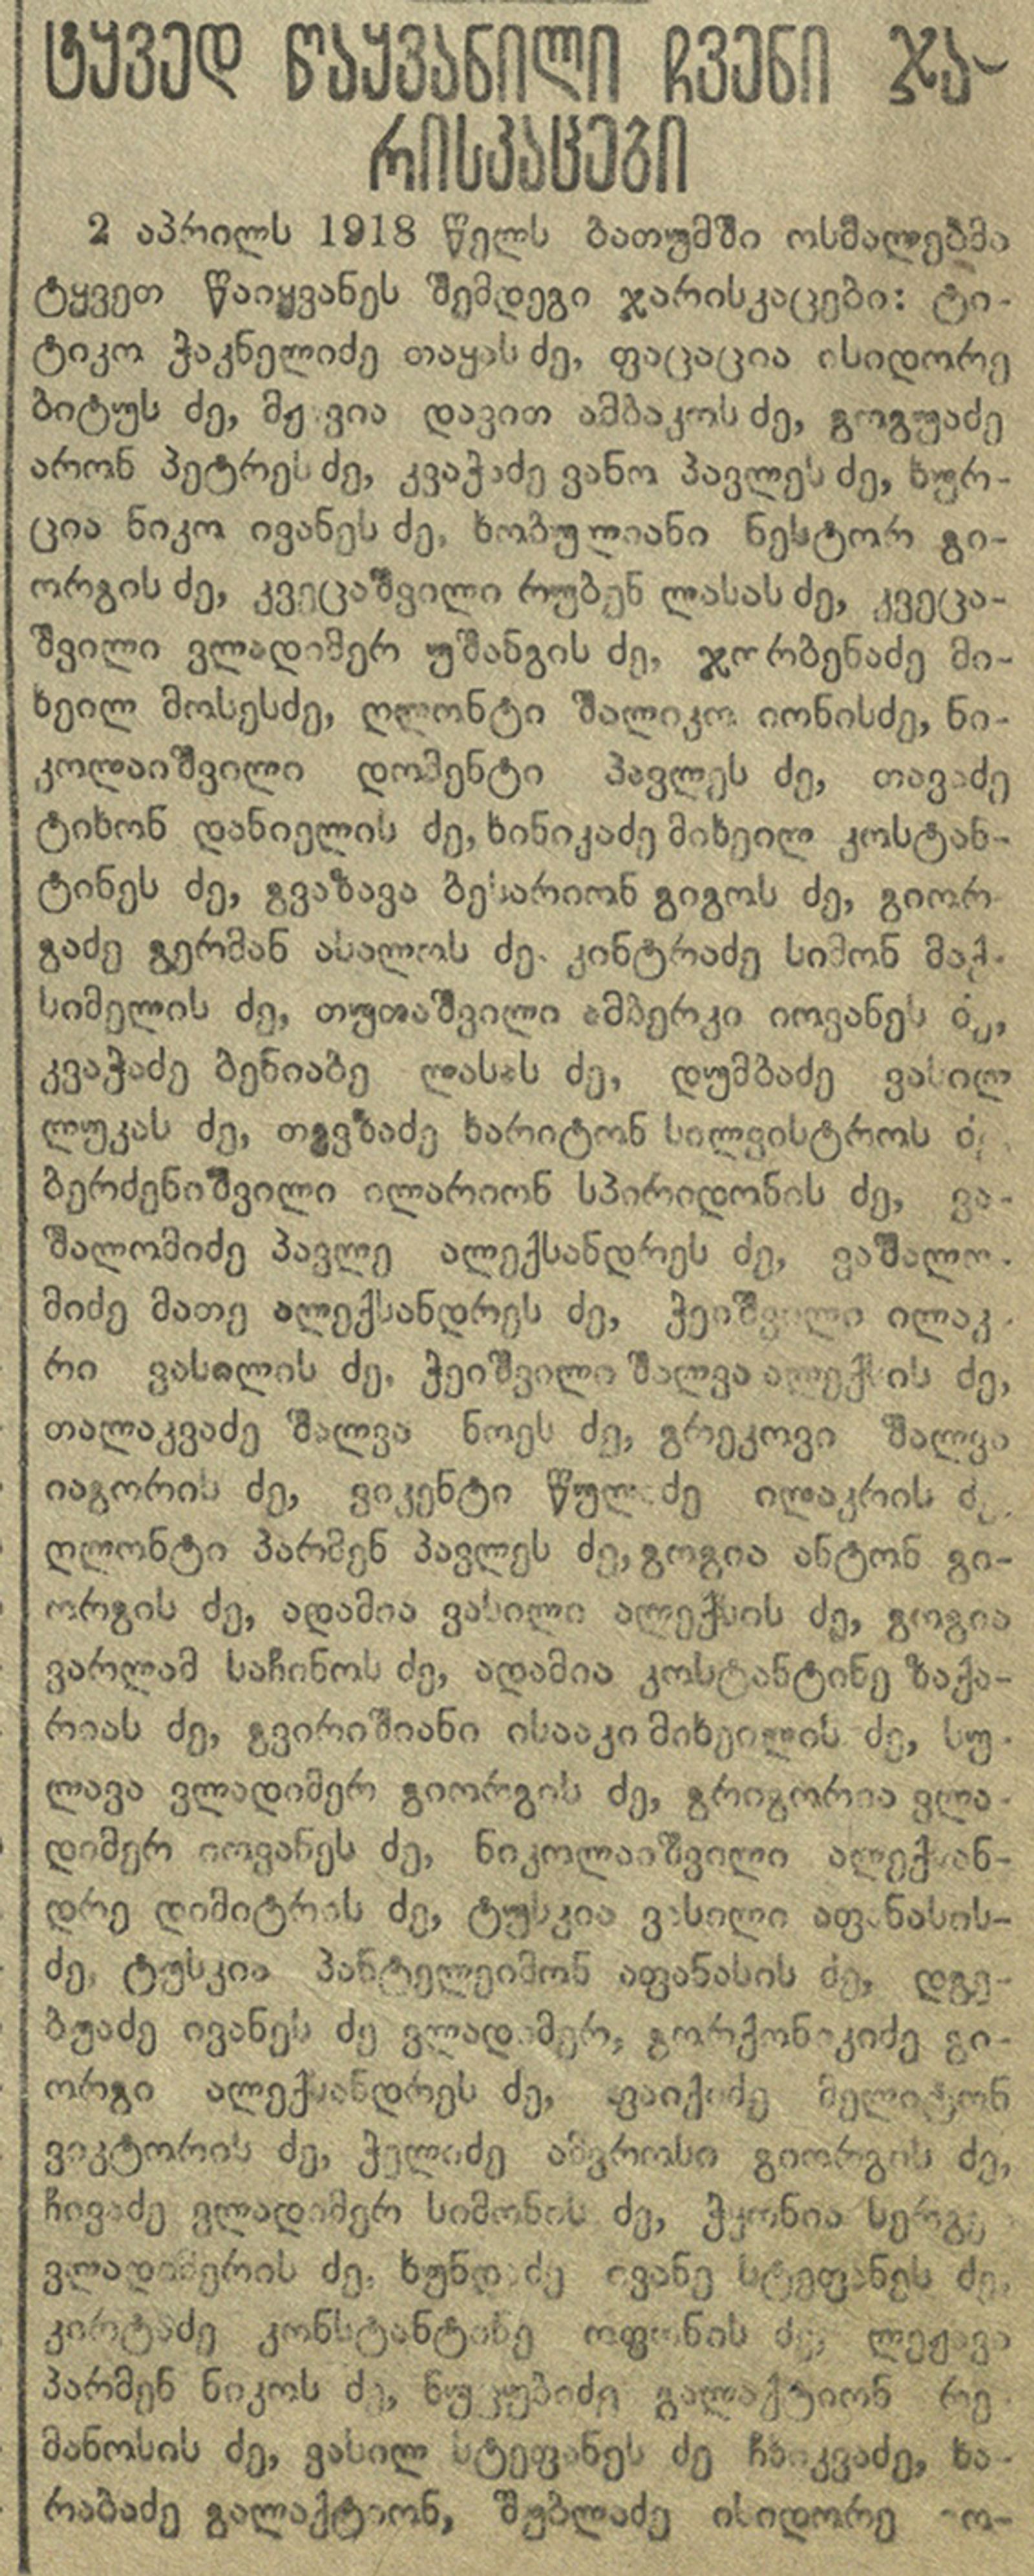 ტყვედ წაყვანილი ჩვენი ჯა-
რისკაცები
2 აპრილს 1918 წელს ბათუმში ოსმალებმა
ტყვეთ წაიყვანეს შემდეგი ჯარისკაცები: ტი-
ტიკო ჭაკნელიძე თაყას ძე, ფაცაცია ისიდორე
ბიტუს ძე, დავით ამბაკოს ძე, გოგუაძე
არონ პეტრეს ძე, კვაჭაძე ვანო პავლეს ძე, ხურ-
ცია ნიკო ივანეს ძე, ხობულიანი ნესტორ გი-
ორგის ძე, კვეცაშვილი რუბენ ლასას ძე, კვეცა-
შვილი ვლადიმერ უშანგის ძე, ჯორბენაძე მი-
ხეილ მოსესძე, ღლონტი შალიკო იონისძე, ნი-
კოლაიშვილი დომენტი პავლეს ძე, თავაძე
ტიხონ დანიელის ძე, ხინიკაძე მიხეილ კოსტან-
ტინეს ძე, გვაზავა ბესარიონ გიგოს ძე, გიორ-
გაძე გერმან ასალოს ძე. კინტრაძე სიმონ მაქ-
სიმელის ძე, თუთაშვილი ამბერკი იოვანეს ძე,
კვაჭაძე ბენიაბე ლასას ძე, დუმბაძე ვასილ
ლუკას ძე, თევზაძე ხარიტონ სილვისტროს ძე
ბერძენიშვილი ილარიონ სპირიდონის ძე, ვა-
შალომიძე პავლე ალექსანდრეს ძე, ვაშალო-
მიძე მათე ალექსანდრეს ძე, ჭეიშვილი ილაკ-
რი ვასილის ძე, ჭეიშვილი შალვა ალექსის ძე,
თალაკვაძე შალვა ნოეს ძე, გრეკოვი შალვა
იაგორის ძე, ვიკენტი წულაძე ილაკრის ძე
ღლონტი პარმენ პავლეს ძე, გოგია ანტონ გი-
ორგის ძე, ადამია ვასილი ალექსის ძე, გოგია
ვარლამ საჩინოს ძე, ადამია კოსტანტინე ზაქა-
რიას ძე, გვირიშიანი ისააკი მიხეილის ძე, სუ-
ლავა ვლადიმერ გიორგის ძე, გრიგორია ვლა-
დიმერ იოვანეს ძე, ნიკოლაიშვილი ალექსან-
დრე დიმიტრის ძე, ტუსკია ვასილი აფანასის-
ძე, ტუსკია პანტელეიმონ აფანასის ძე, დგე-
ბუაძე ივანეს ძე ვლადიმერ, გორქონიკიძე გი-
ორგი ალექსანდრეს ძე, ფაიქიძე მელიტონ
ვიკტორის ძე, ჭელიძე ამვროსი გიორგის ძე,
ჩივაძე ვლადიმერ სიმონის ძე, ჭყონია სერგე
ვლადიმერის ძე, ხუნდაძე ივანე სტეფანეს ძე,
კირტაძე კონსტანტინე ძე, ლეჟავა
პარმენ ნიკოს ძე, ნუცუბიძე გალაქტიონ რე-
მანოსის ძე, ვასილ სტეფანეს ძე ჩხიკვაძე, ხა-
რაბაძე გალაქტიონ, შუბლაძე ისიდორე